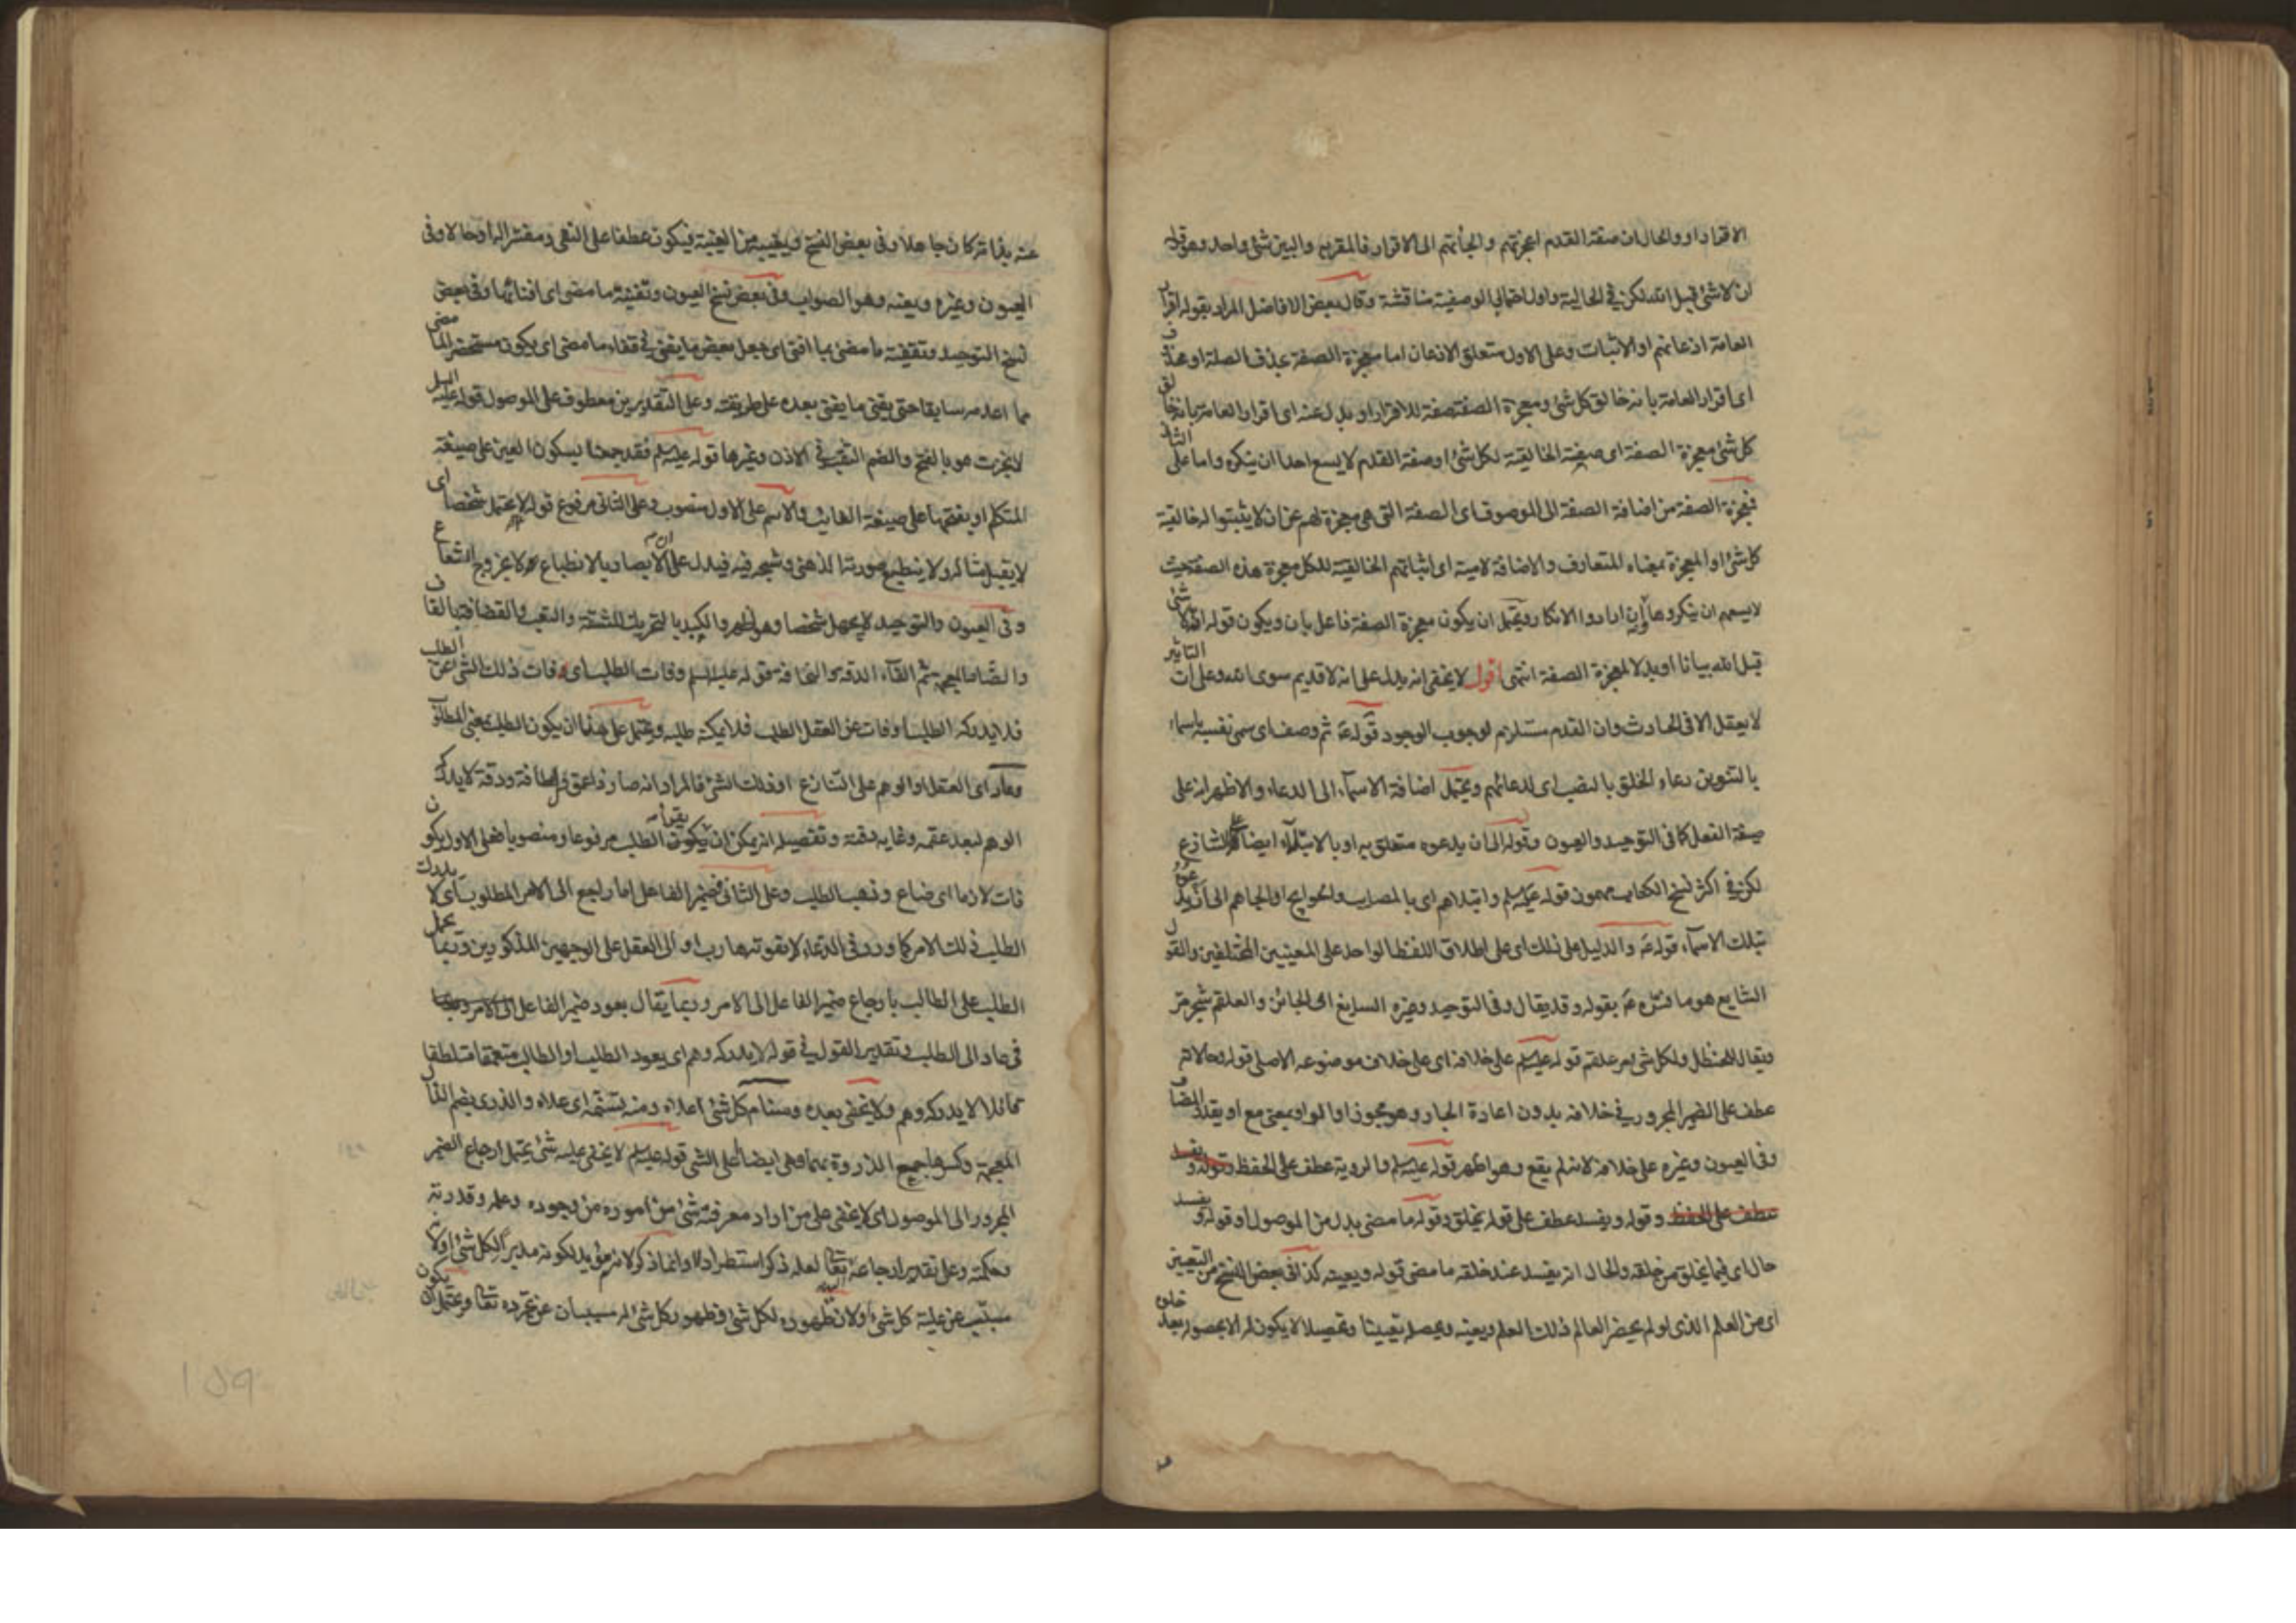 الاقرار او والحال ان صفة القدم اعجزتهم و الجأتهم الى الاقرار فالمقر به والبين شئ واحد وهو قوله
ان لا شئ قبل الله لكن في الحالية و اول احتمالي الوصفية مناقشة وقال بعض الافاضل المراد بقوله اقرار
العامة اذعانهم او الاثبات وعلى الاول متعلق الاذعان اما معجزة الصفة بحذف الصلة او محذوف
اى اقرار العامة بانه خالق كل شئ ومعجزة الصفة صفة للاقرار او بدل عنه اى اقرار العامة بانه خالق
كل شئ معجزة الصفة اى صفة الخالقية لكل شئ او صفة القدم لا يسع احدا ان ينكره واما على الثانى
فمعجزة الصفة من اضافة الصفة الى الموصوف اى الصفة التى هى معجزة لهم عن ان لا يثبتوا له خالقية
كل شئ او المعجزة بمعناه المتعارف والاضافة لامية اى اثباتهم الخالقية للكل معجزة هذه الصفة حيث
لا يسعهم ان ينكروها وان ارادوا الانكار ويحتمل ان يكون معجزة الصفة فاعل بان ويكون قوله انه لا شئ
قبل الله بيانا او بدلا لمعجزة الصفة انتهى اقول لا يخفى انه يدل على انه لا قديم سوى الله وعلى ان التاثير
لا يعقل الا فى الحادث وان القدم مستلزم لوجوب الوجود قوله ع ثم وصف اى سمى نفسه باسماء
بالتنوين دعاء الخلق بالنصب اى لدعائهم ويحتمل اضافة الاسماء الى الدعاء والاظهر انه على
صيغة الفعل كما فى التوحيد والعيون وقوله الى ان يدعوه متعلق به او بالابتلاء ايضا على التنازع
لكن في اكثر نسخ الكتاب مهموز قوله عليه السلم وابتلاهم اى بالمصايب والحوايج او الجاهم الى ان يدعوه
بتلك الاسماء قوله ع والدليل على ذلك اى على اطلاق اللفظ الواحد على المعنيين المختلفين والقول
الشايع هو ما فسره ع بقوله وقد يقال وفى التوحيد وغيره السايغ اى الجائز والعلقم شجر مر
ويقال للحنظل ولكل شئ مر علقم قوله عليه السلم على خلافه اى على خلاف موضوعه الاصلى قوله وحالاته
عطف على الضمير المجرور في خلافه بدون اعادة الجار وهو مجوز او الواو بمعنى مع او يقدر المضاف
وفى العيون وغيره على خلافه لانه لم يقع وهو اظهر قوله عليه السلم والروية عطف على الحفظ وقوله ويفسد
عطف على الحفظ وقوله ويفسد عطف على قوله يخلق وقوله ما مضى بدل من الموصول او قوله ويفسد
حال اى فيما يخلق من خلقه والحال انه يفسد عند خلقه ما مضى قوله ويعينه كذا فى بعض النسخ من التعيين
اى من العلم الذى لو لم يحضر العالم ذلك العلم ويعينه ويحصله تعيينا وتحصيلا لا يكون له الا بحصوله بعد خلوه
عنه بذاته كان جاهلا وفى بعض النسخ ويغيب من الغيبة فيكون عطفا على النفى ومفسرا له او حالا وفى
العيون وغيره ويعنه وهو الصواب وفى بعض نسخ العيون وتفنية ما مضى اى افنائها وفى بعض
نسخ التوحيد وتقفية ما مضى بما افنى اى جعل بعض ما يفنى في قفاء ما مضى اى يكون مستحضرا لما مضى
مما اعدمه سابقا حتى يفنى ما يفنى بعده على طريقته وعلى التقديرين معطوف على الموصول قوله عليه السلم
لا بخرت هو بالفتح والضم الثقب في الاذن وغيرها قوله عليه السلم فقد جمعنا بسكون العين على صيغة
المتكلم او بفتحها على صيغة الغايب والاسم على الاول منصوب وعلى الثانى مرفوع قوله لا يحتمل شخصا اى
لا يقبل مثاله ولا ينطبع صورته الذهنى وشبحه فيه فيدل على ان الابصار بالانطباع لا بخروج الشعاع
وفى العيون والتوحيد لا يجهل شخصا وهو اظهر والكبد بالتحريك المشقة والتعب والقضافة بالقاف
والضاد المعجمة ثم الفاء الدقة والنحافة قوله عليه السلم وفات الطلب اى وفات ذلك الشئ عن الطلب
فلا يدركه الطلب او فات عن العقل الطلب فلا يمكنه طلبه ويحتمل على هذا ان يكون الطلب بمعنى المطلوب
وعاد اى العقل او الوهم على التنازع او ذلك الشئ فالمراد انه صار ذا عمق ولطافة ودقة لا يدركه
الوهم لبعد عمقه وغاية دقته وتفصيله انه يمكن ان يقرأ الطلب مرفوعا ومنصوبا فعلى الاول يكون
فات لازما اى ضاع وذهب الطلب وعلى الثانى فضمير الفاعل اما راجع الى الامر المطلوب اى لا يدرك
الطلب ذلك الامر كما ورد فى الدعاء لا يفوته هارب او الى العقل على الوجهين المذكورين وربما يحمل
الطلب على الطالب بارجاع ضمير الفاعل الى الامر وربما يقال بعود ضمير الفاعل الى الامر
فى عاد الى الطلب وتقدير القول في قوله لا يدركه وهم اى يعود الطلب او الطالب متعمقا متلطفا
قائلا لا يدركه وهم ولا يخفى بعده وسنام كل شئ اعلاه ومنه تسنمه اى علاه والذرى بضم الذال
المعجمة وكسرها جمع الذروة بهما وهى ايضا اعلى الشئ قوله عليه السلم لا يخفى عليه شئ يحتمل ارجاع الضمير
المجرور الى الموصول اى لا يخفى على من اراد معرفة شئ من اموره من وجوده وعلمه وقدرته
وحكمته وعلى تقدير ارجاعه اليه تعالى لعله ذكر استطرادا او انما ذكر لانه مؤيد لكونه مدبرا لكل شئ اولا
مسبب عن علية كل شئ اولان ظهوره لكل شئ وظهور كل شئ له مسببان عن تجرده تعالى ويحتمل ان يكون